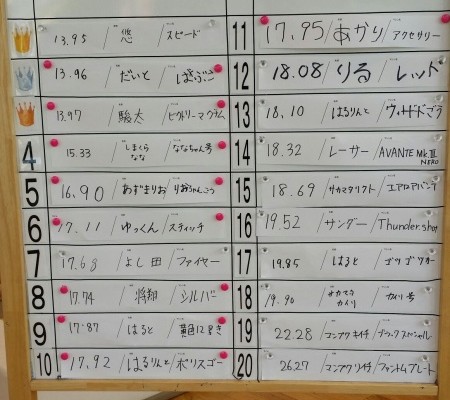 13.95 / 悠 / スピード
13.96 / だいと / ぱぷぷ
13.97 / 駿太 / ビクトリーマグナム
4 15.33 / しまくらなな / ななちゃん号
5 16.90 / あずまりお / りおちゃんごう
6 17.11 / ゆっくん / スティッチ
7 17.68 / よし田 / ファイヤー
8 17.74 / 将翔 / シルバー
9 17.87 / はると / 黄色
10 17.92 / はるりんと / ポリスゴー
11 17.95 / あかり / アクセサリー
12 18.08 / りる / レッド
13 18.10 / はるりんと / ウィザードごう
14 18.32 / レーサー / AVANTE Mk.III NERO
15 18.69 / サカマタリクト / エアロアバンテ
16 19.52 / サンダー / Thunder.shot
17 19.85 / はると / ゴツゴツカー
18 19.90 / カイリ / カイリ号
19 22.28 / コンアクケイチ / ブラックスペシャル
20 26.27 / コンアクケイチ / ファントムブレート